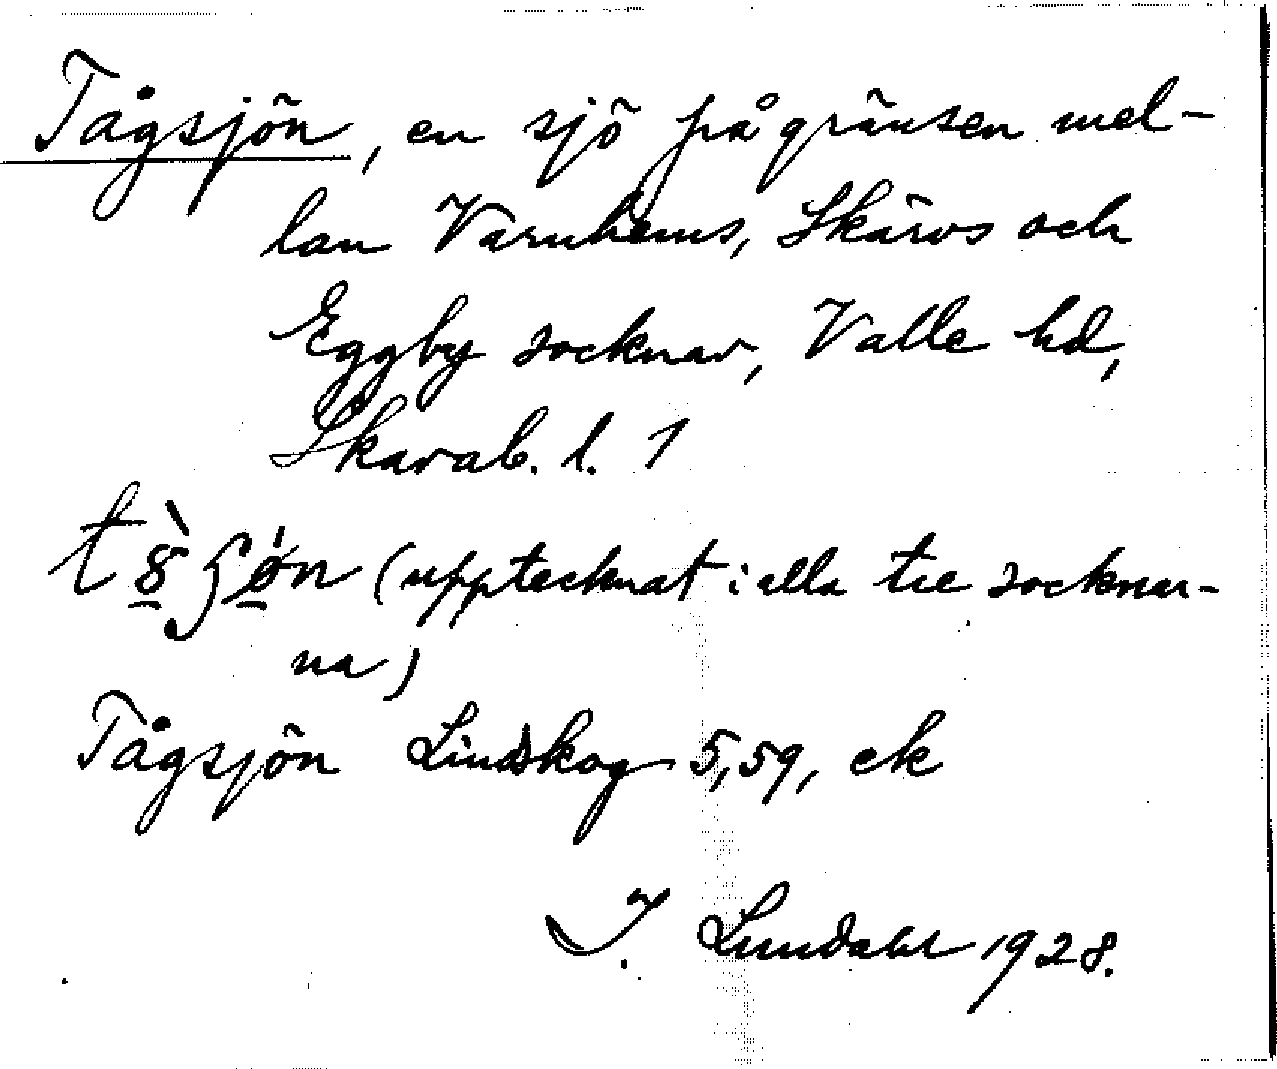 Tågsjön, en sjö på gränsen mel-
lan Varnhems, Skärvs och
Eggby socknar, Valle hd,
Skarab. l. 1
(upptecknat i alla tre socknar-
na)
Tågsjön Lindskog 5,59, ek
I. Lundahl 1928.